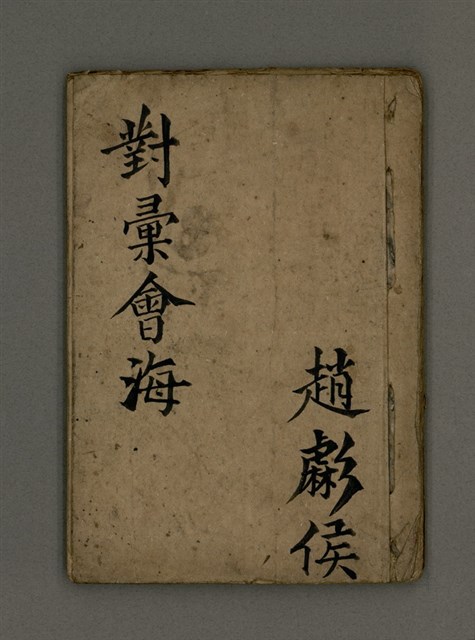 趙侯
對彙會海